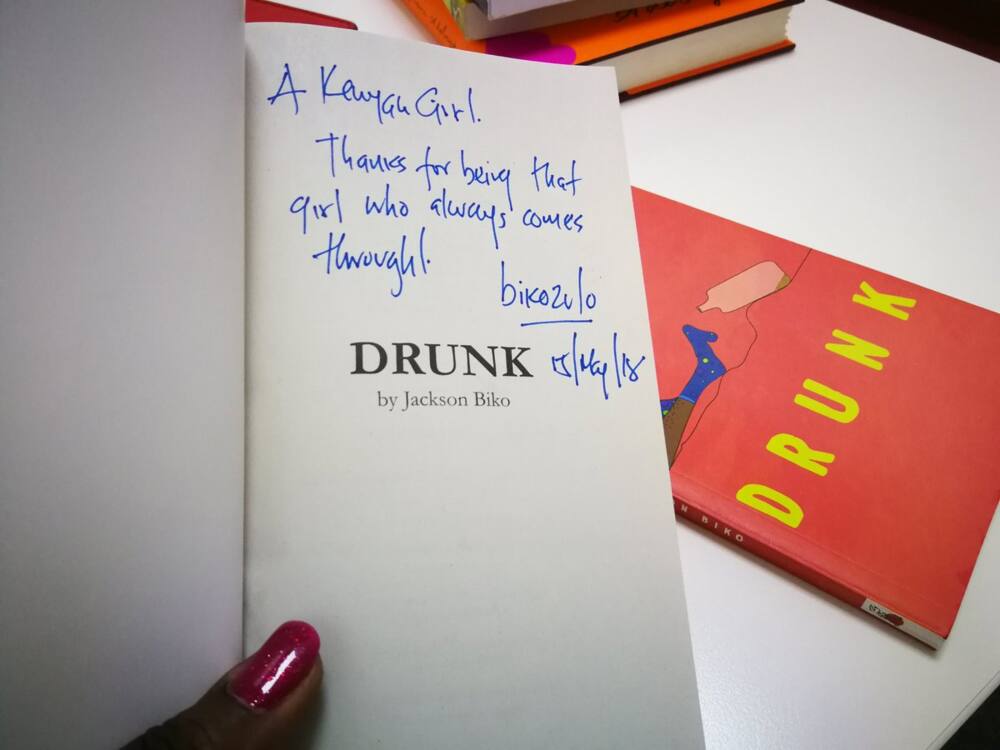 A Kenyan Girl.
Thanks for being that
girl who always comes
through!
bikozulo
15/May/18
DRUNK
by Jackson Biko
DRUNK
N BIKO